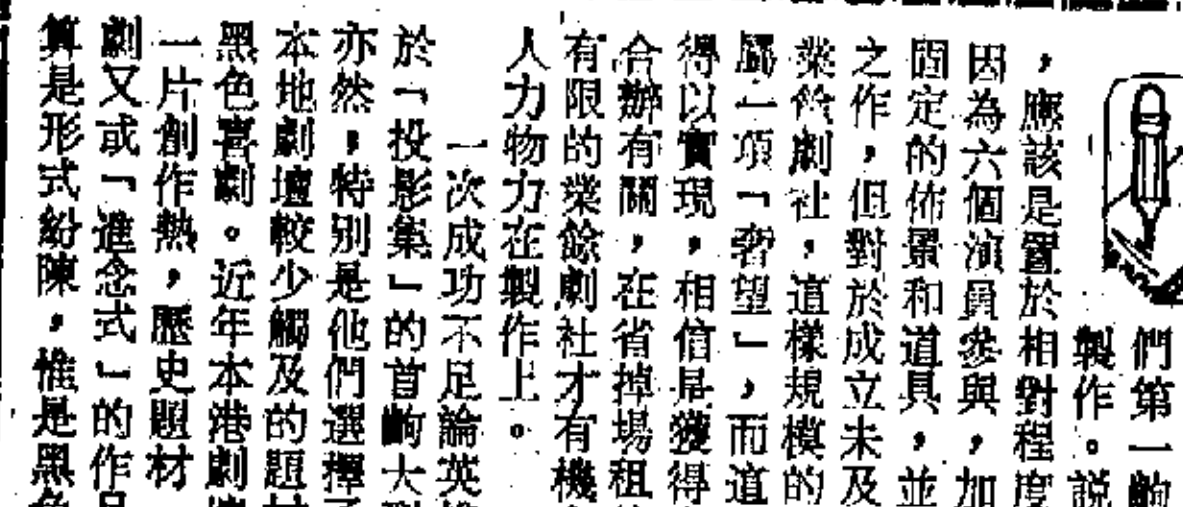 們第一齣
製作。説
，應該是置於相對程度
因為六個演員參與，加
固定的佈景和道具，並
之作，但對於成立未及
業餘劇社，這樣規模的
屬一項「奢望」，而這
得以實現，相信是獲得
合辦有關，在省掉場租
有限的業餘劇社才有機
人力物力在製作上。
一次成功不足論英
於「投影集」的首齣大
亦然，特別是他們選擇
本地劇壇較少觸及的題材
黑色喜劇。近年本港劇
一片創作熱，歷史題材
劇又或「進念式」的作品
算是形式紛陳，惟是黑色